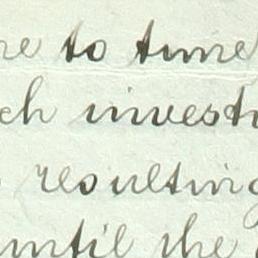 me to time
ch invest
resulting
until the